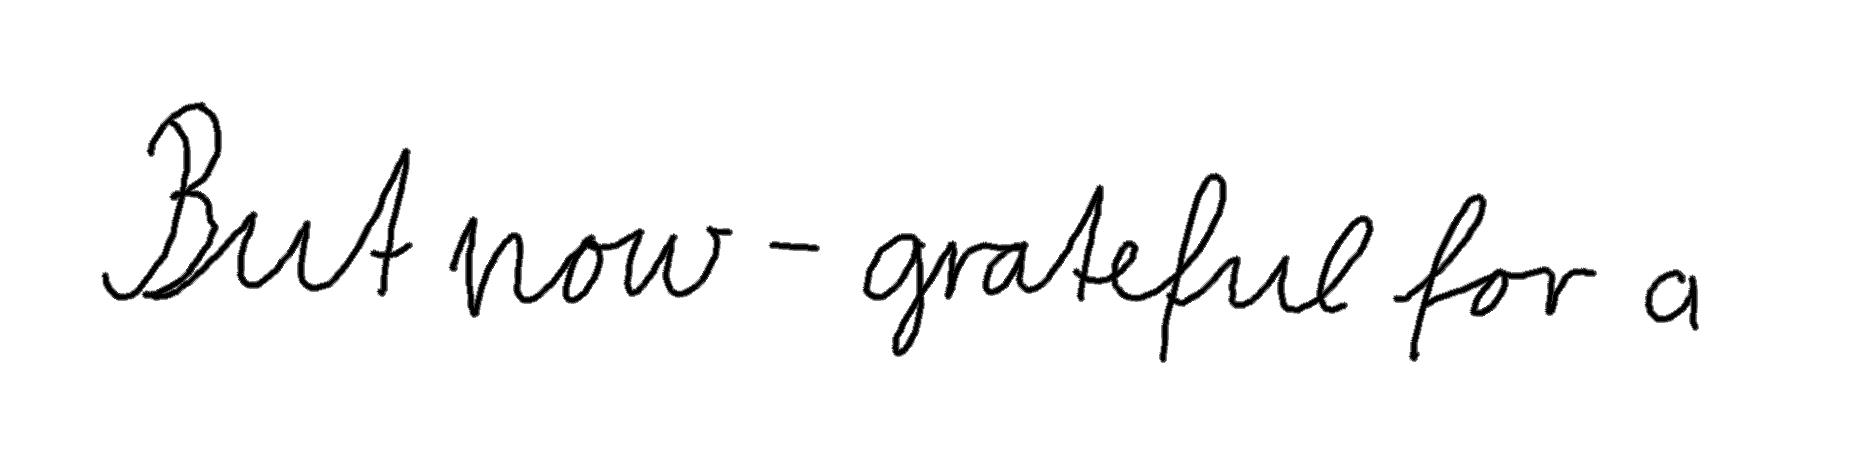 But now - grateful for a